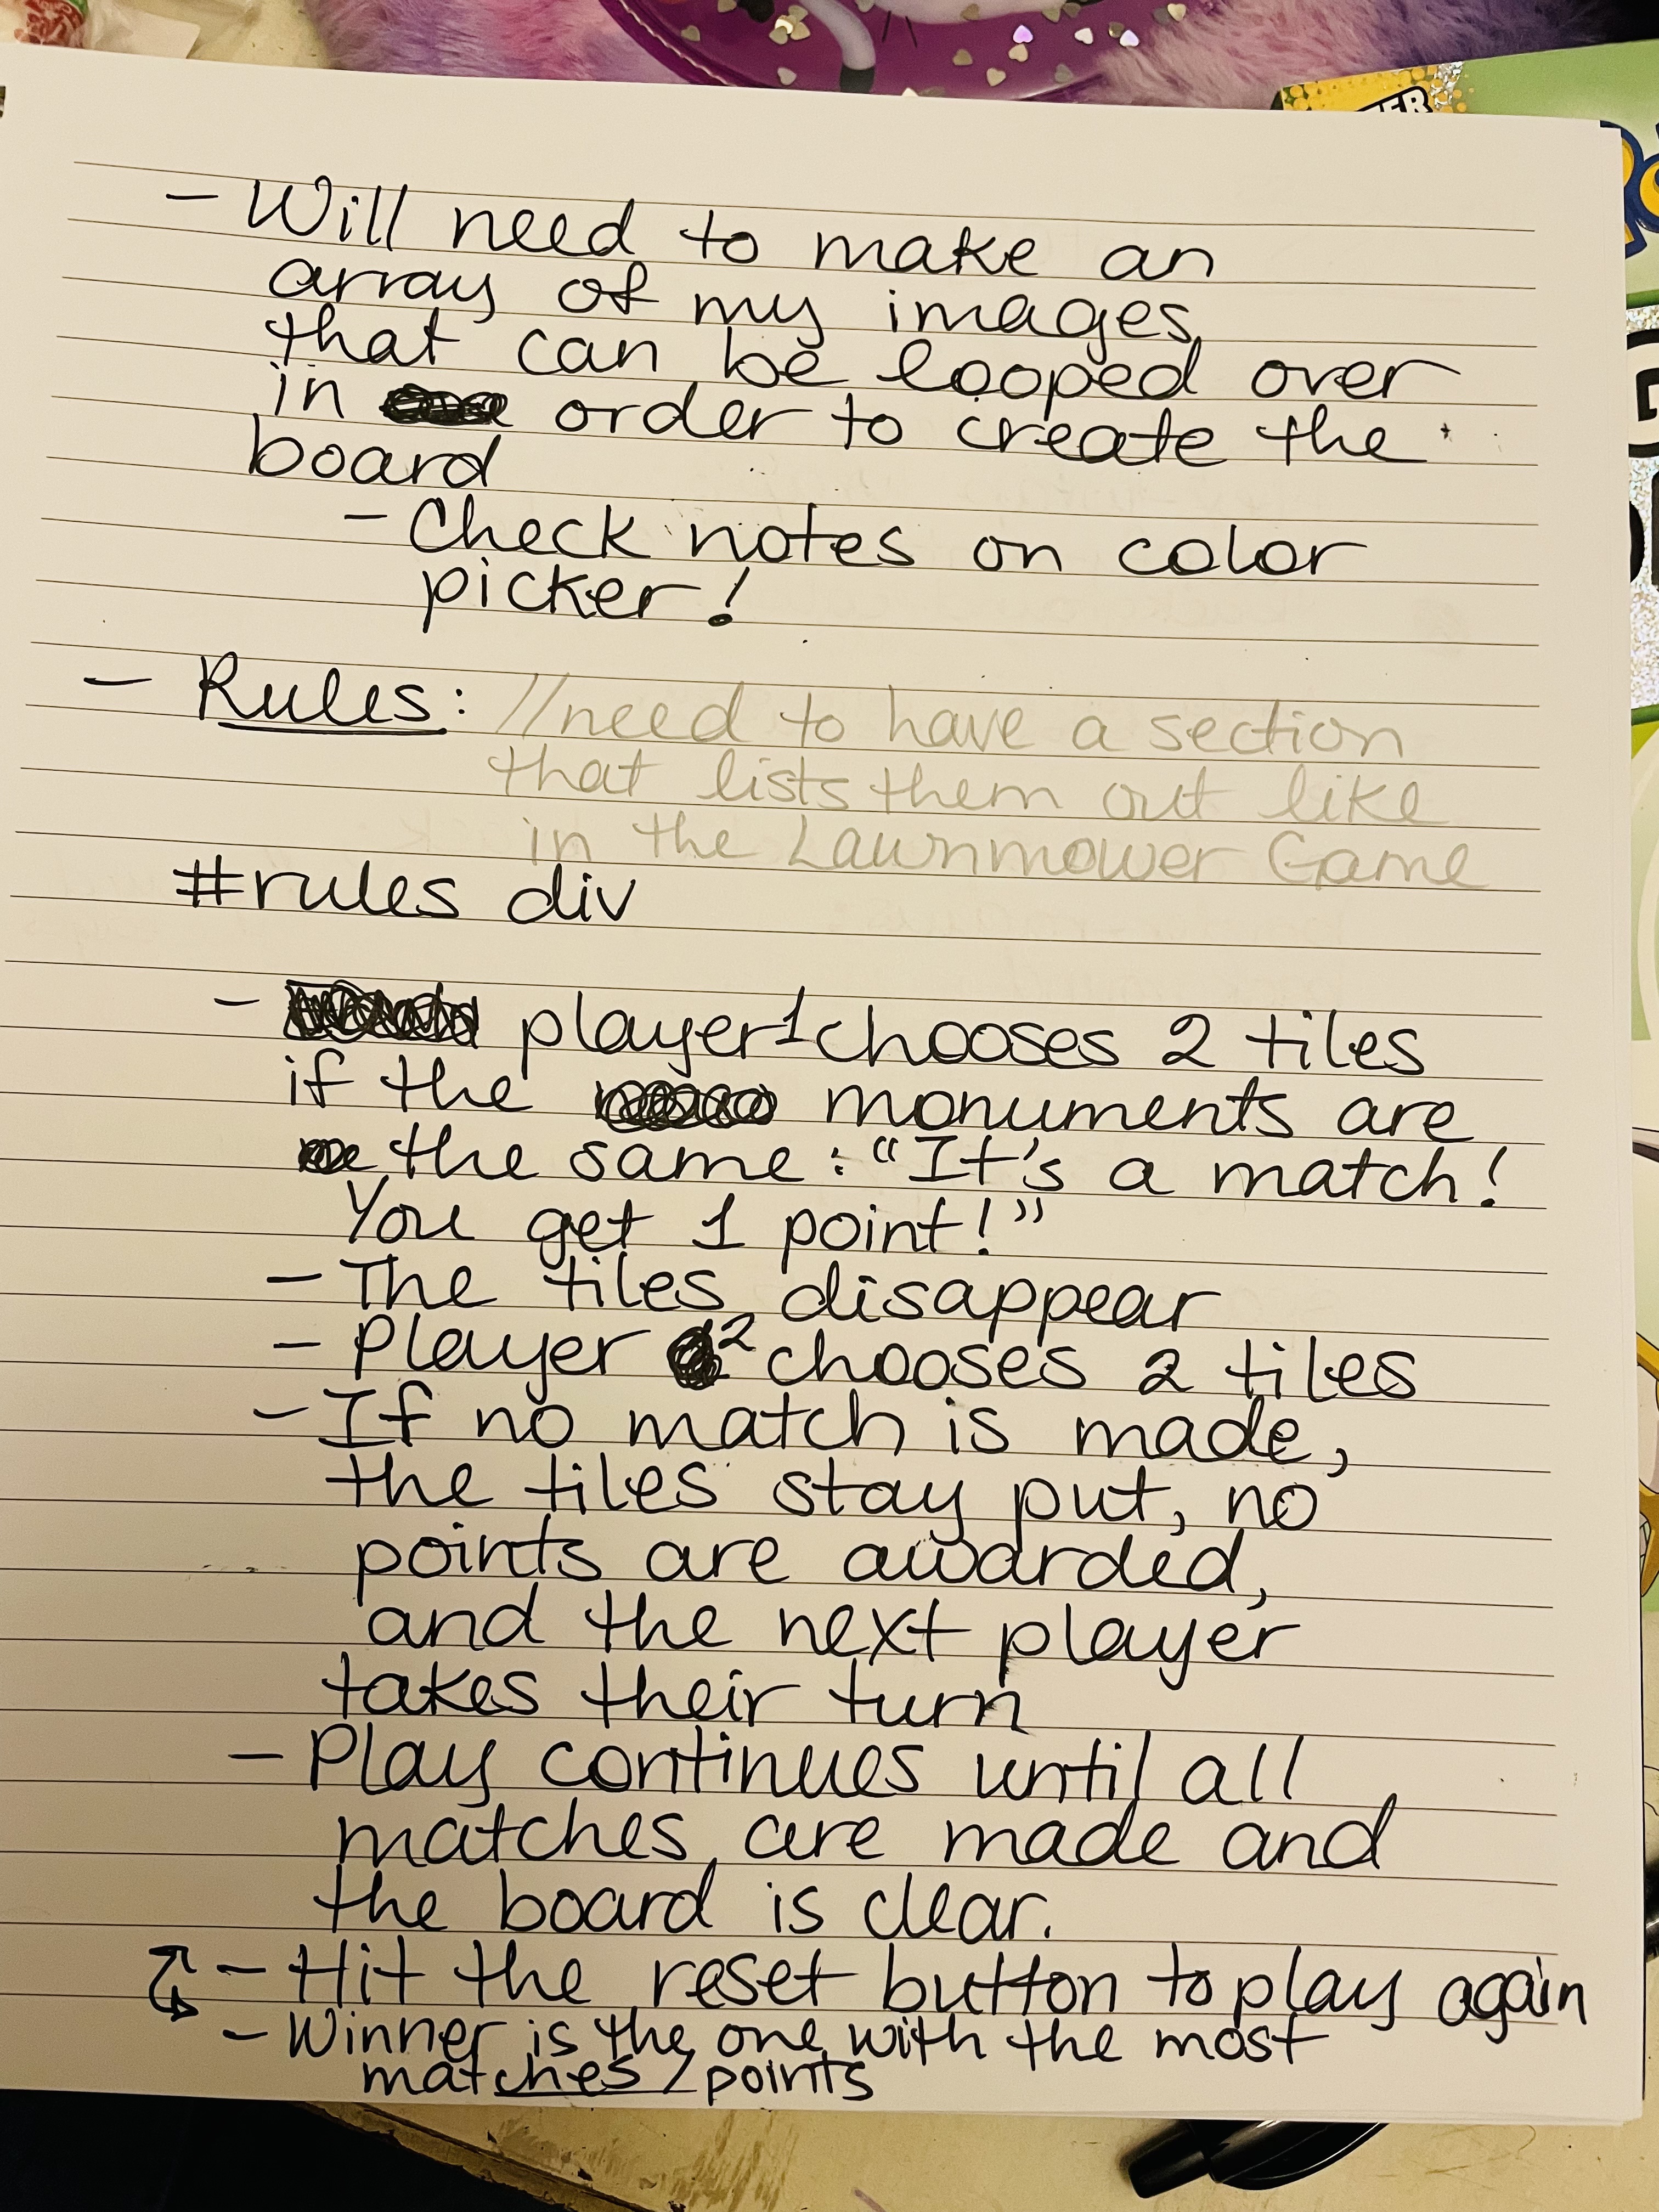 - Will need to make an
array of my images
that can be looped over
in order to create the
board
- Check notes on color
picker!
- Rules: //need to have a section
that lists them out like
in the Lawnmower Game
#rules div
- player 1 chooses 2 tiles
if the monuments are
the same: "It's a match!
You get 1 point!"
- The tiles disappear
- Player 2 chooses 2 tiles
- If no match is made,
the tiles stay put, no
points are awarded,
and the next player
takes their turn
- Play continues until all
matches are made and
the board is clear.
- Hit the reset button to play again
- Winner is the one with the most
matches / points